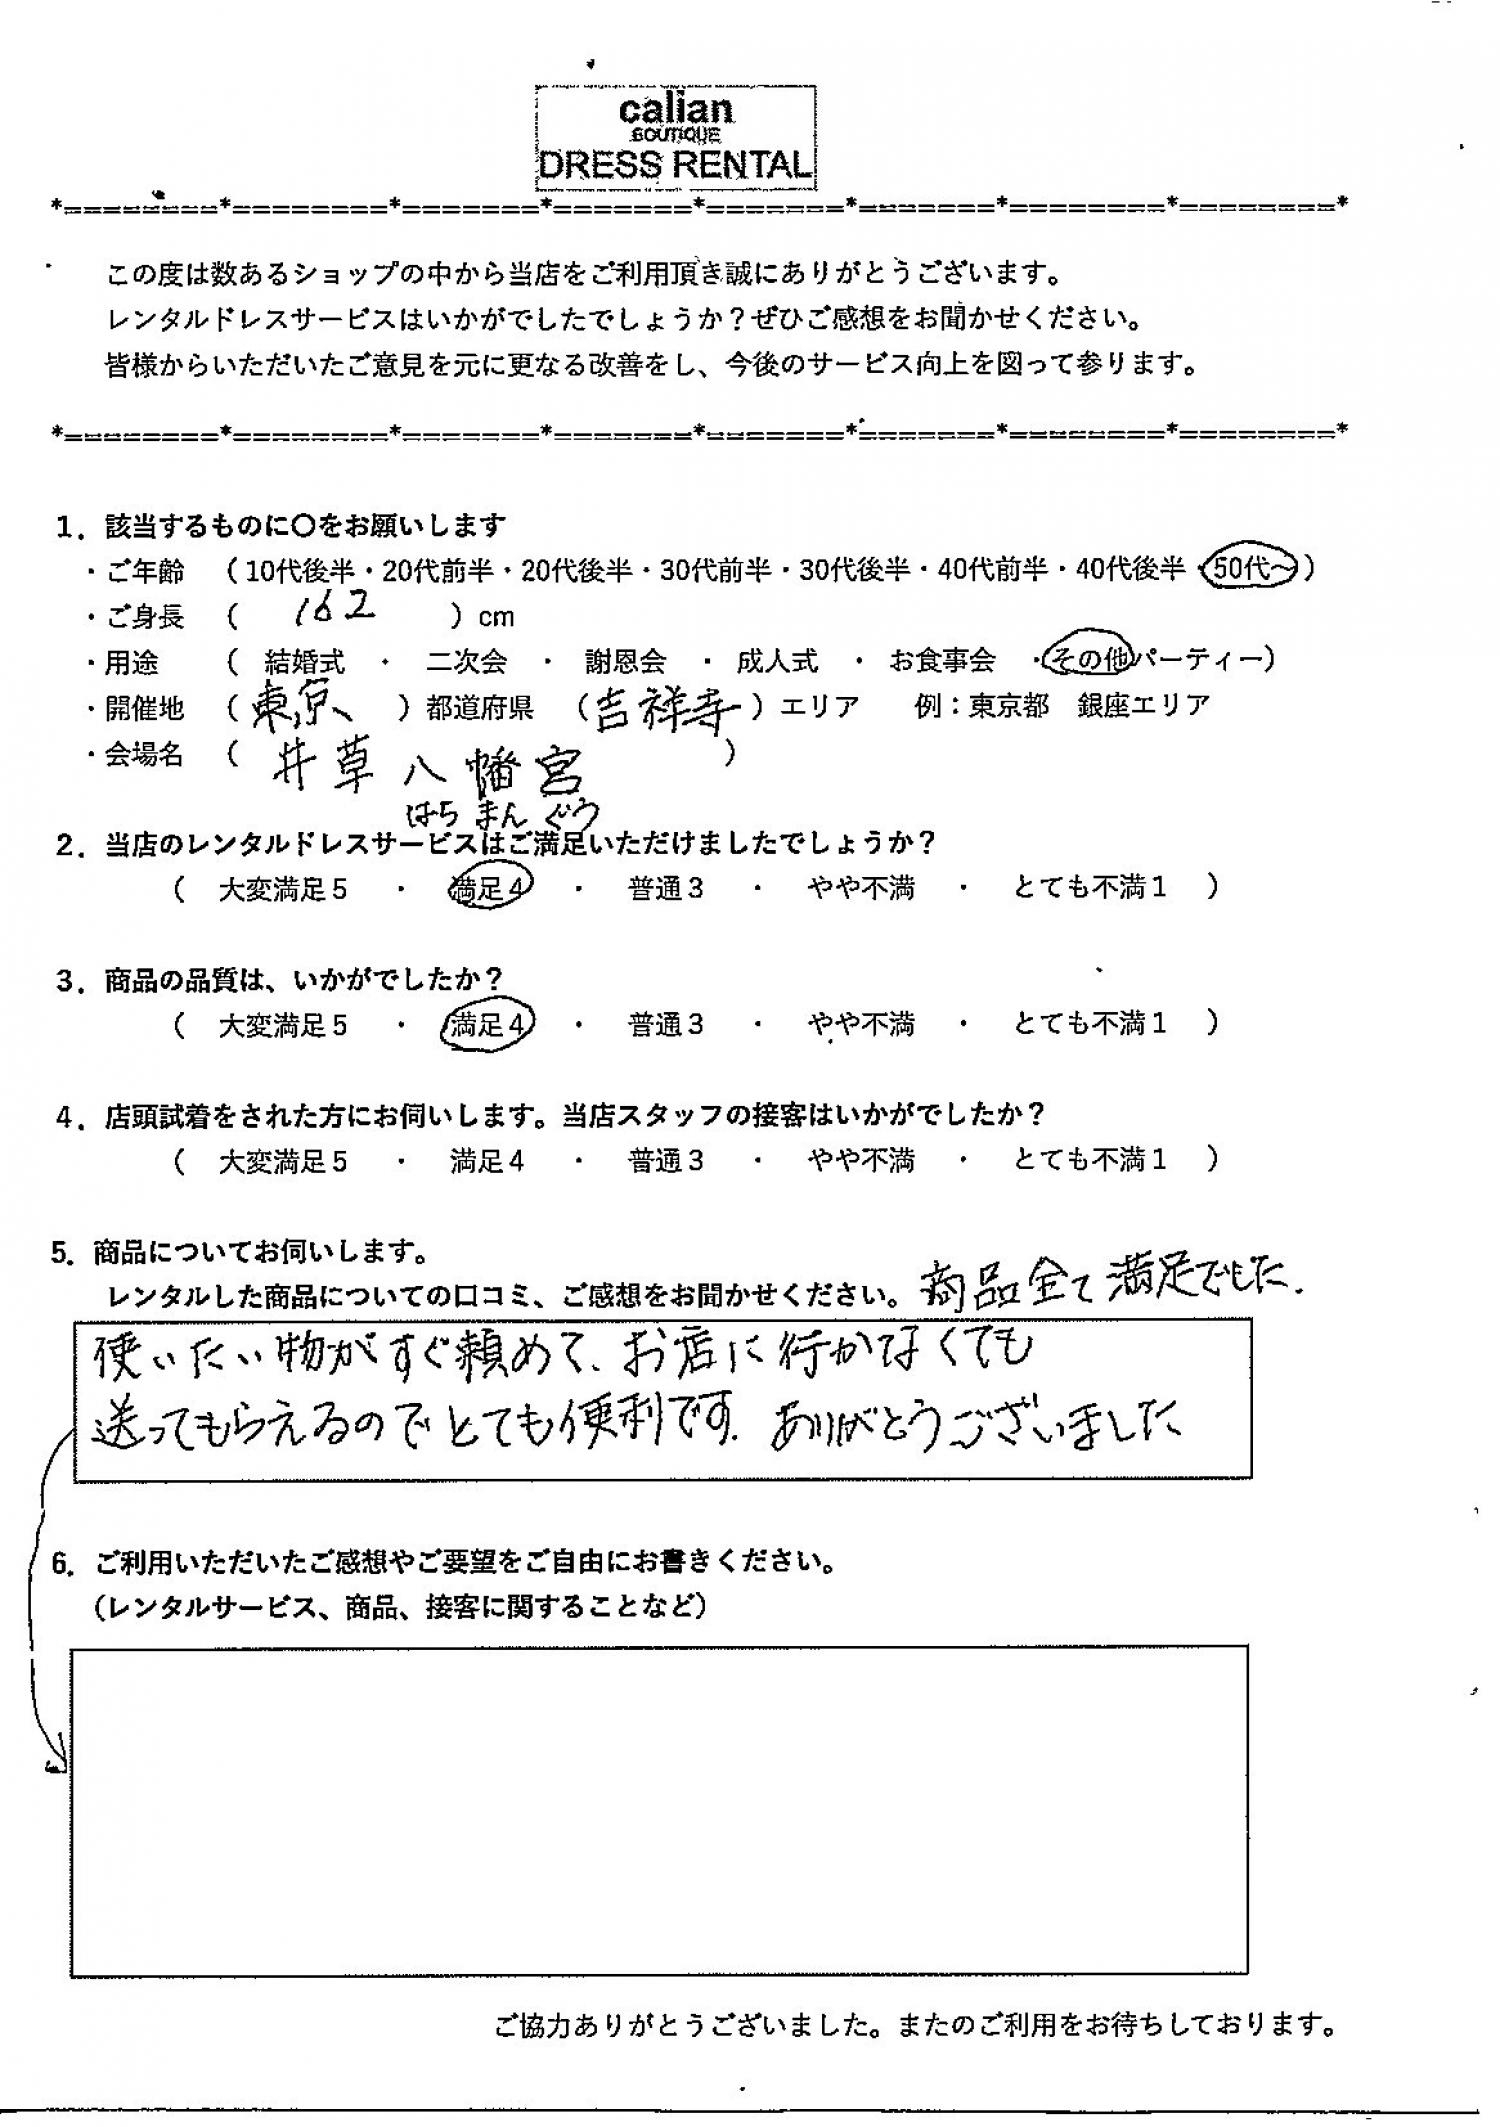 calian
BOUTIQUE
DRESS RENTAL
*========*========*=======*=======*=======*=======*========*========*
この度は数あるショップの中から当店をご利用頂き誠にありがとうございます。
レンタルドレスサービスはいかがでしたでしょうか？ぜひご感想をお聞かせください。
皆様からいただいたご意見を元に更なる改善をし、今後のサービス向上を図って参ります。
*========*========*=======*=======*=======*=======*========*========*
1. 該当するものに〇をお願いします
・ご年齢 （10代後半・20代前半・20代後半・30代前半・30代後半・40代前半・40代後半・50代～）
・ご身長 （ 162 ）cm
・用途 （ 結婚式 ・ 二次会 ・ 謝恩会 ・ 成人式 ・ お食事会 ・その他パーティー）
・開催地 （ 東京 ）都道府県 （ 吉祥寺 ）エリア 例：東京都 銀座エリア
・会場名 （ 井草八幡宮 ）
はちまんぐう
2. 当店のレンタルドレスサービスはご満足いただけましたでしょうか？
（ 大変満足5 ・ 満足4 ・ 普通3 ・ やや不満 ・ とても不満1 ）
3. 商品の品質は、いかがでしたか？
（ 大変満足5 ・ 満足4 ・ 普通3 ・ やや不満 ・ とても不満1 ）
4. 店頭試着をされた方にお伺いします。当店スタッフの接客はいかがでしたか？
（ 大変満足5 ・ 満足4 ・ 普通3 ・ やや不満 ・ とても不満1 ）
5. 商品についてお伺いします。
レンタルした商品についての口コミ、ご感想をお聞かせください。 商品全て満足でした.
使いたい物がすぐ頼めて、お店に行かなくても
送ってもらえるのでとても便利です. ありがとうございました
6. ご利用いただいたご感想やご要望をご自由にお書きください。
（レンタルサービス、商品、接客に関することなど）
ご協力ありがとうございました。またのご利用をお待ちしております。